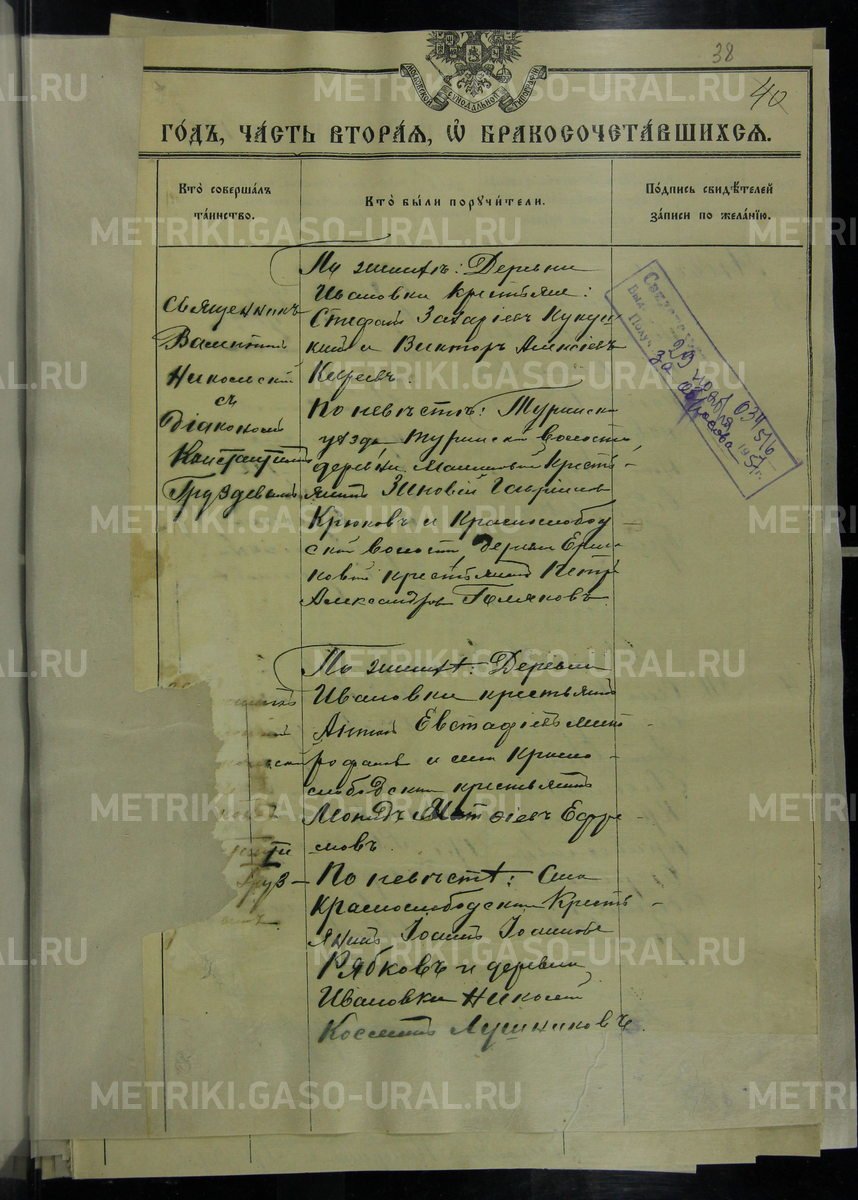 МОСКОВСКОЙ СѴНОДАЛЬНОЙ ТИПОГРАФІИ
38
40
ГО́ДЪ, ЧА́СТЬ ВТОРА́Я, Ѽ БРАКОСОЧЕТА́ВШИХСЯ.
Кто̀ совершалъ
та́инство.
Кто̀ бы́ли поручи́тели.
По́дпись свидѣ́телей
за́писи по жела́нїю.
Священникъ
Валентинъ
Никольскій
съ
Діакономъ
Константиномъ
Груздевымъ
По женихѣ: Деревни
Ивановки крестьяне:
Стефанъ Захаріевъ Кукуш
кин и Викторъ Алексіевъ
По невѣстѣ: Туринска
уѣзда Туринской волости,
деревни крестья-
нинъ Зиновій Гавріиловъ
Крюковъ и Краснослобод
ской волости, деревни Ерши-
ковой крестьянинъ Петръ
Александровъ Поляковъ.
29 ноября 1957 г.
034516
за
По женихѣ: Деревни
Ивановки крестьянинъ
Антонъ Евстафіевъ Мит-
рофановъ и села Красно-
слободскаго крестьянинъ
Ефре-
мовъ.
По невѣстѣ: Села
Краснослободскаго Кресть-
янинъ Іоаннъ Іоанновъ
Рябковъ и деревни
Ивановки Николай
Косминъ Лушниковъ.
Груз-
METRIKI.GASO-URAL.RU